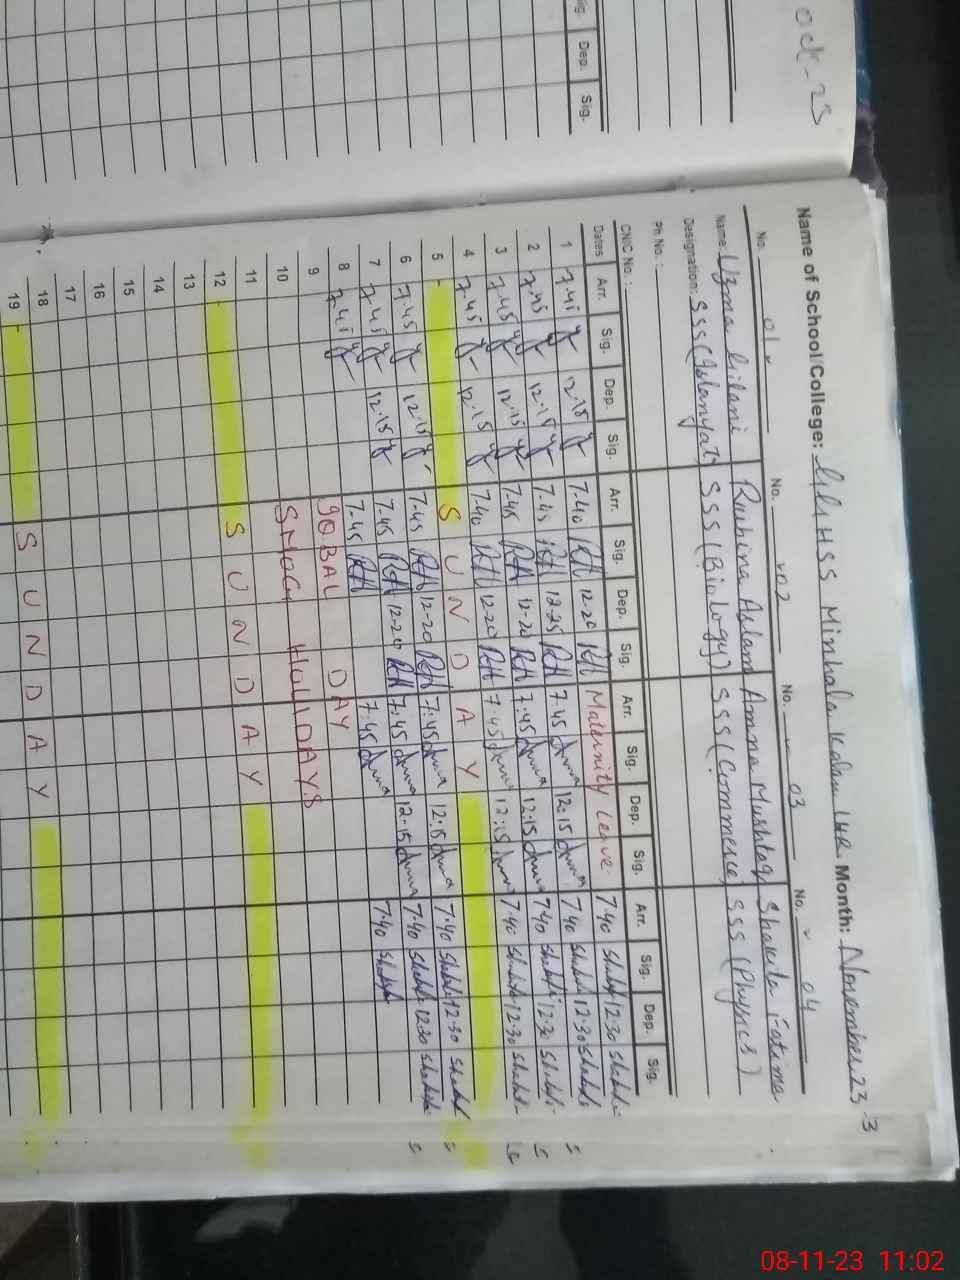 Oct-23
Sig. Dep. Sig.
Name of School/College: GGHSS Minhala Kalan LHR Month: November 23
3
No. 01 No. 02 No. 03 No. 04
Name: Uzma Gilani Rubina Aslam Amna Mushtaq Shakeela Fatima
Designation: SSS (Islamyat) SSS (Biology) SSS (Commerce) SSS (Physics)
Ph No.:
CNIC No.:
Dates Arr. Sig. Dep. Sig. Arr. Sig. Dep. Sig. Arr. Sig. Dep. Sig. Arr. Sig. Dep. Sig.
1 7.45 12.15 7-40 RA 12-20 RA Maternity Leave 7.40 12.30
2 7.45 12.15 7-45 RA 12-25 RA 7:45 Amna 12:15 Amna 7.40 12.30
3 7.45 12.15 7.45 RA 12-20 RA 7:45 Amna 12:15 Amna 7.40 12.30
4 7.45 12.15 7.40 RA 12-20 RA 7:45 Amna 12:15 Amna 7.40 12.30
5 SUNDAY
6 7.45 12.15 7-45 RA 12-20 RA 7:45 Amna 12:15 Amna 7.40 12.30
7 7.45 12.15 7-45 RA 12-20 RA 7:45 Amna 12:15 Amna 7.40 12.30
8 7.45 7-45 RA 7:45 Amna 7.40
9 IQBAL DAY
10 SMOG HOLIDAYS
11
12 SUNDAY
13
14
15
16
17
18
19 SUNDAY
08-11-23 11:02